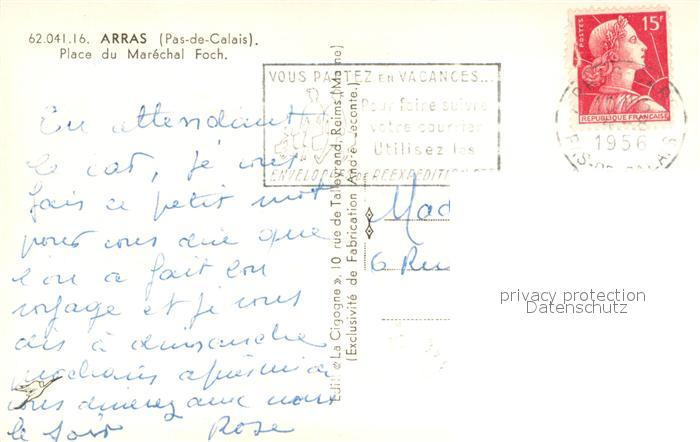 62.041.16. ARRAS (Pas-de-Calais).
Place du Maréchal Foch.
VOUS PARTEZ en VACANCES...
Pour faire suivre
votre courrier
Utilisez les
ENVELOPPES de RÉEXPÉDITION
POSTES 15F
REPUBLIQUE FRANÇAISE
1956
PAS-DE-CALAIS
En attendant
le car, je vous
fais ce petit mot
pour vous dire que
l'on a fait bon
voyage et je vous
dis à dimanche
prochain après midi
vous dinerez avec nous
le soir Rose
Edit. « La Cigogne », 10 rue de Talleyrand, Reims (Marne)
(Exclusivité de Fabrication André Leconte.)
Mad
6 Ru
privacy protection
Datenschutz